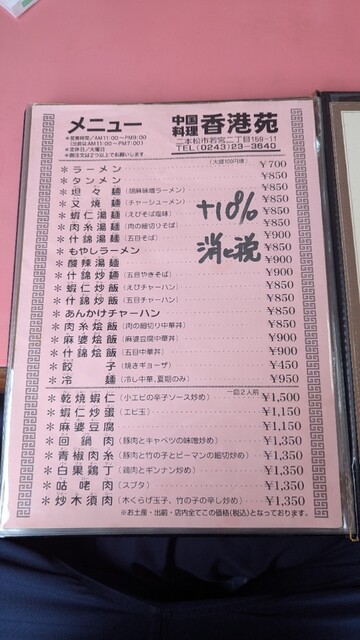 メニュー
中国料理 香港苑
＊営業時間／AM11:00〜PM9:00
(出前はAM11:00〜PM7:00)
＊定休日／火曜日
＊御注文は2つ以上でお願いします
二本松市若宮二丁目159-11
TEL(0243)23-3640
(大盛100円増)
＊ラーメン ¥700
＊タンメン ¥850
＊坦々麺(胡麻味噌ラーメン) ¥850
＊叉焼麺(チャーシューメン) ¥850
＊蝦仁湯麺(えびそば塩味) ¥850
＊肉糸湯麺(肉の細切りそば) ¥850
＊什錦湯麺(五目そば) ¥900
＊もやしラーメン ¥850
＊酸辣湯麺 ¥900
＊什錦炒麺(五目やきそば) ¥900
＊蝦仁炒飯(えびチャーハン) ¥850
＊什錦炒飯(五目チャーハン) ¥850
＊あんかけチャーハン ¥850
＊肉糸燴飯(肉の細切り中華丼) ¥850
＊麻婆燴飯(麻婆豆腐中華丼) ¥900
＊什錦燴飯(五目中華丼) ¥900
＊餃子(焼きギョーザ) ¥450
＊冷麺(冷し中華、夏期のみ) ¥950
+10%
消費税
一皿2人前
＊乾焼蝦仁(小エビの辛子ソース炒め) ¥1,500
＊蝦仁炒蛋(エビ玉) ¥1,150
＊麻婆豆腐 ¥1,150
＊回鍋肉(豚肉とキャベツの味噌炒め) ¥1,350
＊青椒肉糸(豚肉と竹の子とピーマンの細切り炒め) ¥1,350
＊白果鶏丁(鶏肉とギンナン炒め) ¥1,350
＊咕咾肉(スブタ) ¥1,350
＊炒木須肉(木くらげ玉子、竹の子の辛し炒め) ¥1,350
＊お土産・出前・店内全てこの価格(税込)となっております。